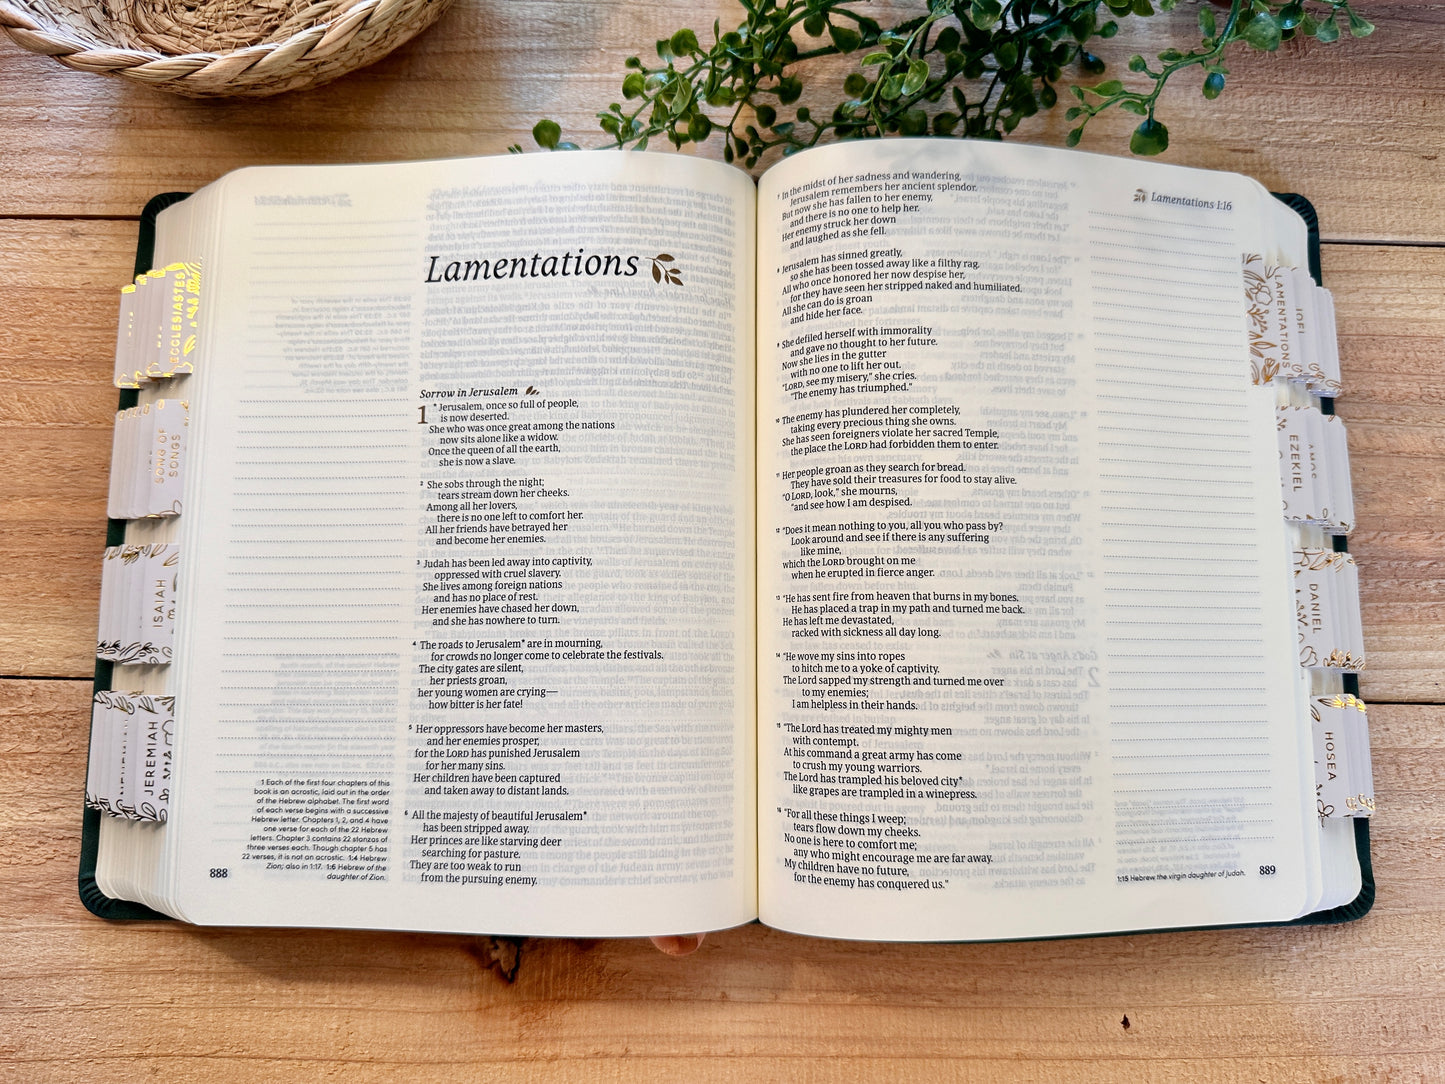 Lamentations
Sorrow in Jerusalem
1 * Jerusalem, once so full of people,
is now deserted.
She who was once great among the nations
now sits alone like a widow.
Once the queen of all the earth,
she is now a slave.
2 She sobs through the night;
tears stream down her cheeks.
Among all her lovers,
there is no one left to comfort her.
All her friends have betrayed her
and become her enemies.
3 Judah has been led away into captivity,
oppressed with cruel slavery.
She lives among foreign nations
and has no place of rest.
Her enemies have chased her down,
and she has nowhere to turn.
4 The roads to Jerusalem* are in mourning,
for crowds no longer come to celebrate the festivals.
The city gates are silent,
her priests groan,
her young women are crying—
how bitter is her fate!
5 Her oppressors have become her masters,
and her enemies prosper,
for the LORD has punished Jerusalem
for her many sins.
Her children have been captured
and taken away to distant lands.
6 All the majesty of beautiful Jerusalem*
has been stripped away.
Her princes are like starving deer
searching for pasture.
They are too weak to run
from the pursuing enemy.
1 Each of the first four chapters of this
book is an acrostic, laid out in the order
of the Hebrew alphabet. The first word
of each verse begins with a successive
Hebrew letter. Chapters 1, 2, and 4 have
one verse for each of the 22 Hebrew
letters. Chapter 3 contains 22 stanzas of
three verses each. Though chapter 5 has
22 verses, it is not an acrostic. 1:4 Hebrew
Zion; also in 1:17. 1:6 Hebrew of the
daughter of Zion.
888
Lamentations 1:16
7 In the midst of her sadness and wandering,
Jerusalem remembers her ancient splendor.
But now she has fallen to her enemy,
and there is no one to help her.
Her enemy struck her down
and laughed as she fell.
8 Jerusalem has sinned greatly,
so she has been tossed away like a filthy rag.
All who once honored her now despise her,
for they have seen her stripped naked and humiliated.
All she can do is groan
and hide her face.
9 She defiled herself with immorality
and gave no thought to her future.
Now she lies in the gutter
with no one to lift her out.
"LORD, see my misery," she cries.
"The enemy has triumphed."
10 The enemy has plundered her completely,
taking every precious thing she owns.
She has seen foreigners violate her sacred Temple,
the place the LORD had forbidden them to enter.
11 Her people groan as they search for bread.
They have sold their treasures for food to stay alive.
"O LORD, look," she mourns,
"and see how I am despised.
12 "Does it mean nothing to you, all you who pass by?
Look around and see if there is any suffering
like mine,
which the LORD brought on me
when he erupted in fierce anger.
13 "He has sent fire from heaven that burns in my bones.
He has placed a trap in my path and turned me back.
He has left me devastated,
racked with sickness all day long.
14 "He wove my sins into ropes
to hitch me to a yoke of captivity.
The Lord sapped my strength and turned me over
to my enemies;
I am helpless in their hands.
15 "The Lord has treated my mighty men
with contempt.
At his command a great army has come
to crush my young warriors.
The Lord has trampled his beloved city*
like grapes are trampled in a winepress.
16 "For all these things I weep;
tears flow down my cheeks.
No one is here to comfort me;
any who might encourage me are far away.
My children have no future,
for the enemy has conquered us."
1:15 Hebrew the virgin daughter of Judah.
889
ECCLESIASTES
SONG OF
SONGS
ISAIAH
JEREMIAH
LAMENTATIONS
JOEL
EZEKIEL
AMOS
DANIEL
HOSEA